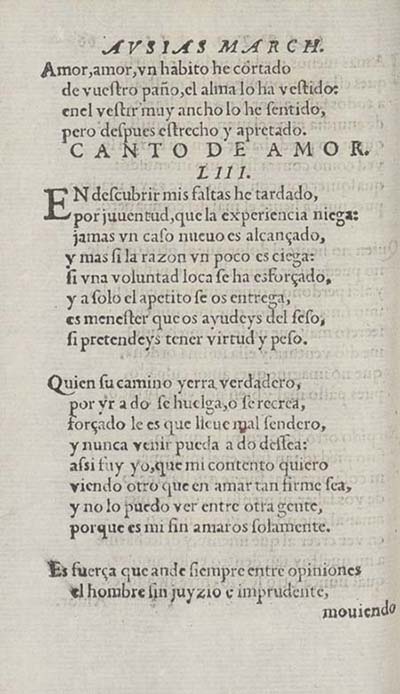 AVSIAS MARCH.
Amor, amor, vn habito he cortado
de vuestro paño, el alma lo ha vestido:
enel vestir muy ancho lo he sentido,
pero despues estrecho y apretado.
CANTO DE AMOR.
LIII.
EN descubrir mis faltas he tardado,
por juuentud, que la experiencia niega:
jamas vn caso nueuo es alcançado,
y mas si la razon vn poco es ciega:
si vna voluntad loca se ha esforçado,
y a solo el apetito se os entrega,
es menester que os ayudeys del seso,
si pretendeys tener virtud y peso.
Quien su camino yerra verdadero,
por yr a do se huelga, o se recrea,
forçado le es que lleue mal sendero,
y nunca venir pueda a do dessea:
assi fuy yo, que mi contento quiero
viendo otro que en amar tan firme sea,
y no lo puedo ver entre otra gente,
porque es mi fin amaros solamente.
Es fuerça que ande siempre entre opiniones
el hombre sin juyzio e imprudente,
mouiendo